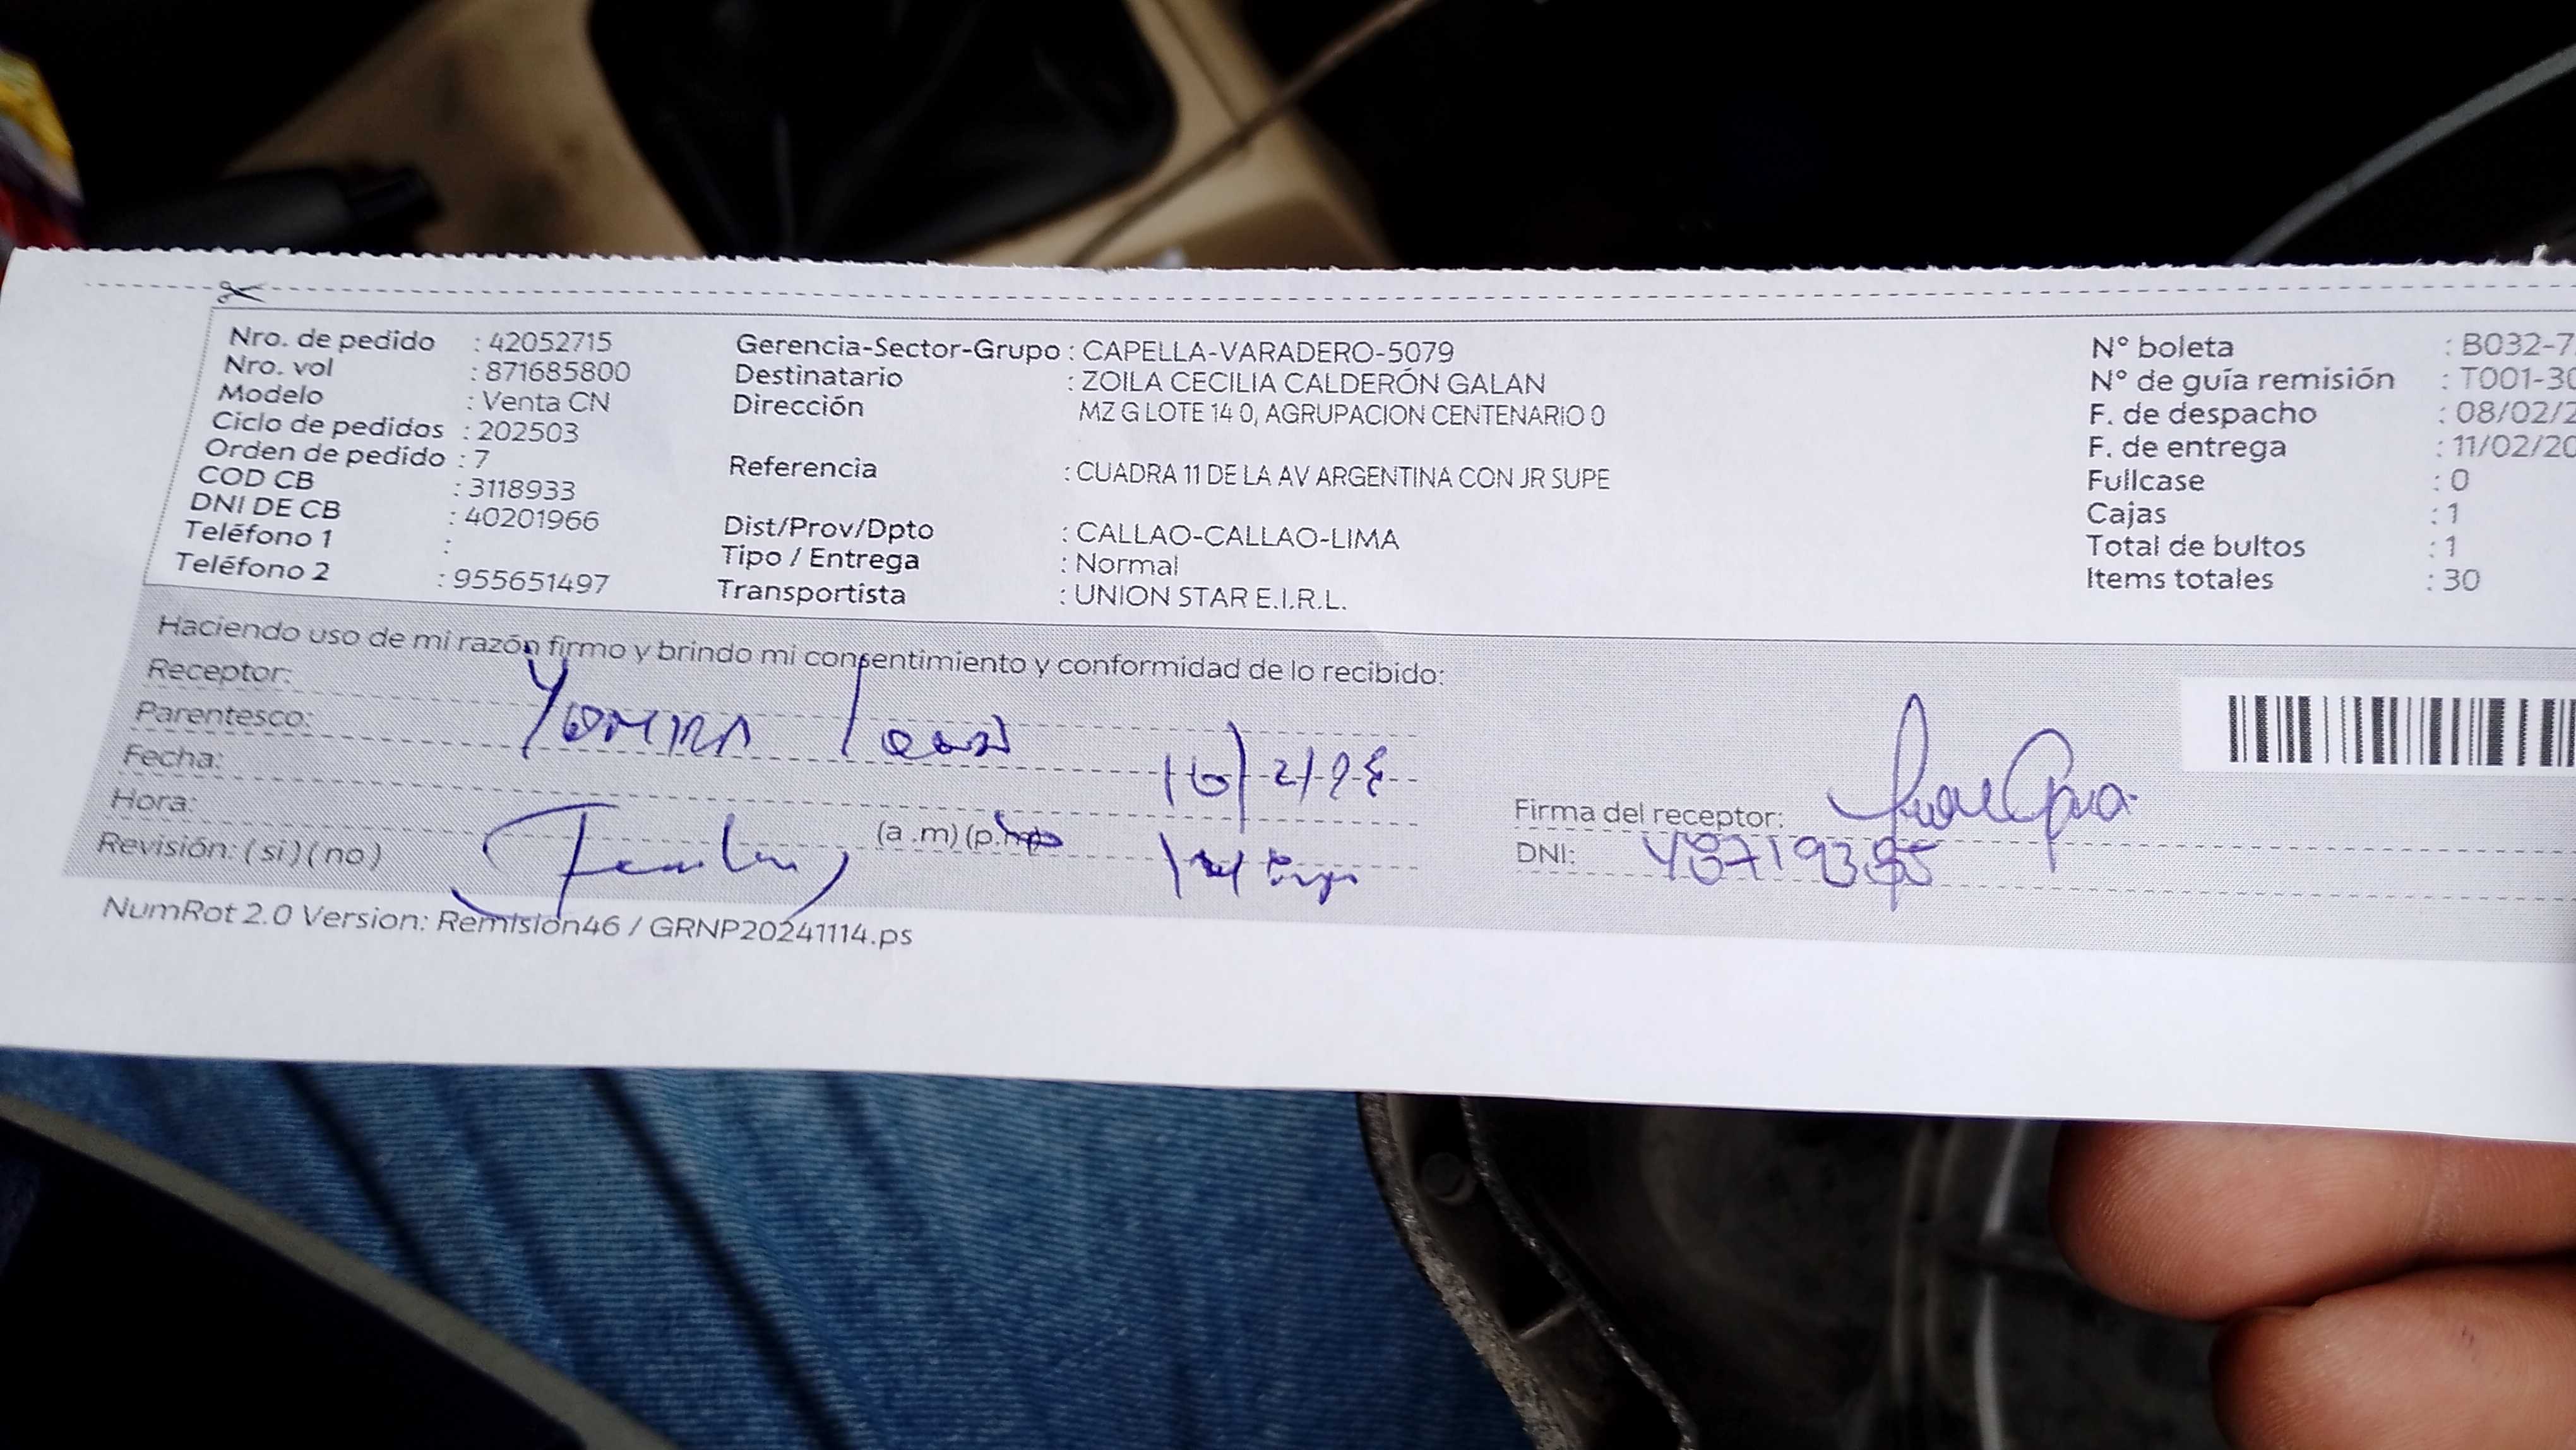 Nro. de pedido : 42052715
Nro. vol : 871685800
Modelo : Venta CN
Ciclo de pedidos : 202503
Orden de pedido : 7
COD CB : 3118933
DNI DE CB : 40201966
Teléfono 1 :
Teléfono 2 : 955651497
Gerencia-Sector-Grupo : CAPELLA-VARADERO-5079
Destinatario : ZOILA CECILIA CALDERÓN GALAN
Dirección MZ G LOTE 14 0, AGRUPACION CENTENARIO 0
Referencia : CUADRA 11 DE LA AV ARGENTINA CON JR SUPE
Dist/Prov/Dpto : CALLAO-CALLAO-LIMA
Tipo / Entrega : Normal
Transportista : UNION STAR E.I.R.L.
N° boleta : B032-7
N° de guía remisión : T001-30
F. de despacho : 08/02/2
F. de entrega : 11/02/20
Fullcase : 0
Cajas : 1
Total de bultos : 1
Items totales : 30
Haciendo uso de mi razón firmo y brindo mi consentimiento y conformidad de lo recibido:
Receptor:
Parentesco:
Fecha:
Hora: (a .m) (p.
Revisión: ( si ) ( no )
Firma del receptor:
DNI:
NumRot 2.0 Version: Remision46 / GRNP20241114.ps